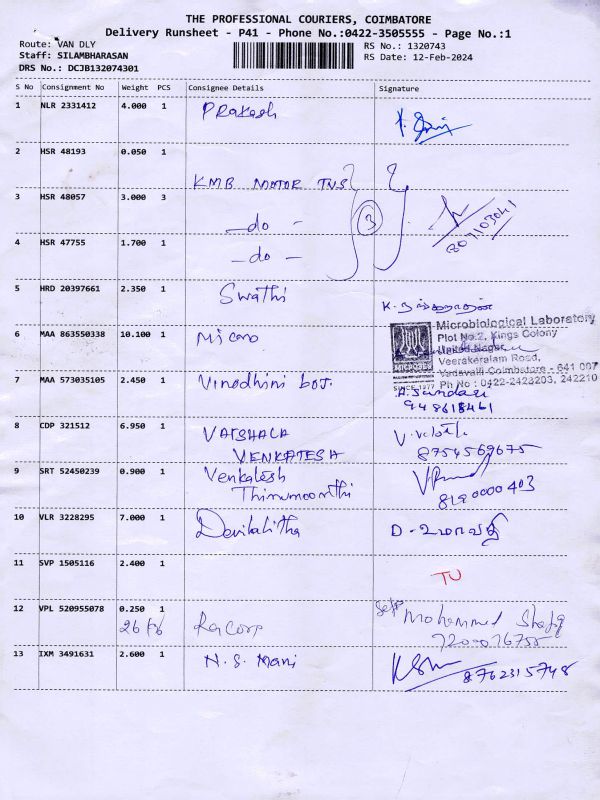 THE PROFESSIONAL COURIERS, COIMBATORE
Delivery Runsheet - P41 - Phone No.:0422-3505555 - Page No.:1
Route: VAN DLY
Staff: SILAMBHARASAN
DRS No.: DCJB132074301
RS No.: 1320743
RS Date: 12-Feb-2024
S No Consignment No Weight PCS Consignee Details Signature
1 NLR 2331412 4.000 1 Prakash
2 HSR 48193 0.050 1 KMB MOTOR TVS
3 HSR 48057 3.000 3 -do- 3
4 HSR 47755 1.700 1 -do-
5 HRD 20397661 2.350 1 Swathi
6 MAA 863550338 10.100 1 Micro
Microbiological Laboratory
Plot No:2, Kings Colony
United Nagar,
Veerakeralam Road,
Vadavalli Coimbatore - 641 007
Ph No : 0422-2423203, 242210
SINCE 1977
7 MAA 573035105 2.450 1 Vinodhini A. Sundari
948618461
8 CDP 321512 6.950 1 VATSHALA
VENKATESH 8754569675
9 SRT 52450239 0.900 1 Venkatesh
Thirumoorthi 8190000403
10 VLR 3228295 7.000 1 Devilalitha D. உமாவதி
11 SVP 1505116 2.400 1 TU
12 VPL 520955078 0.250 1 Mohammed Shafiq
Racorp
13 IXM 3491631 2.600 1 N.S. Mani 8762315748